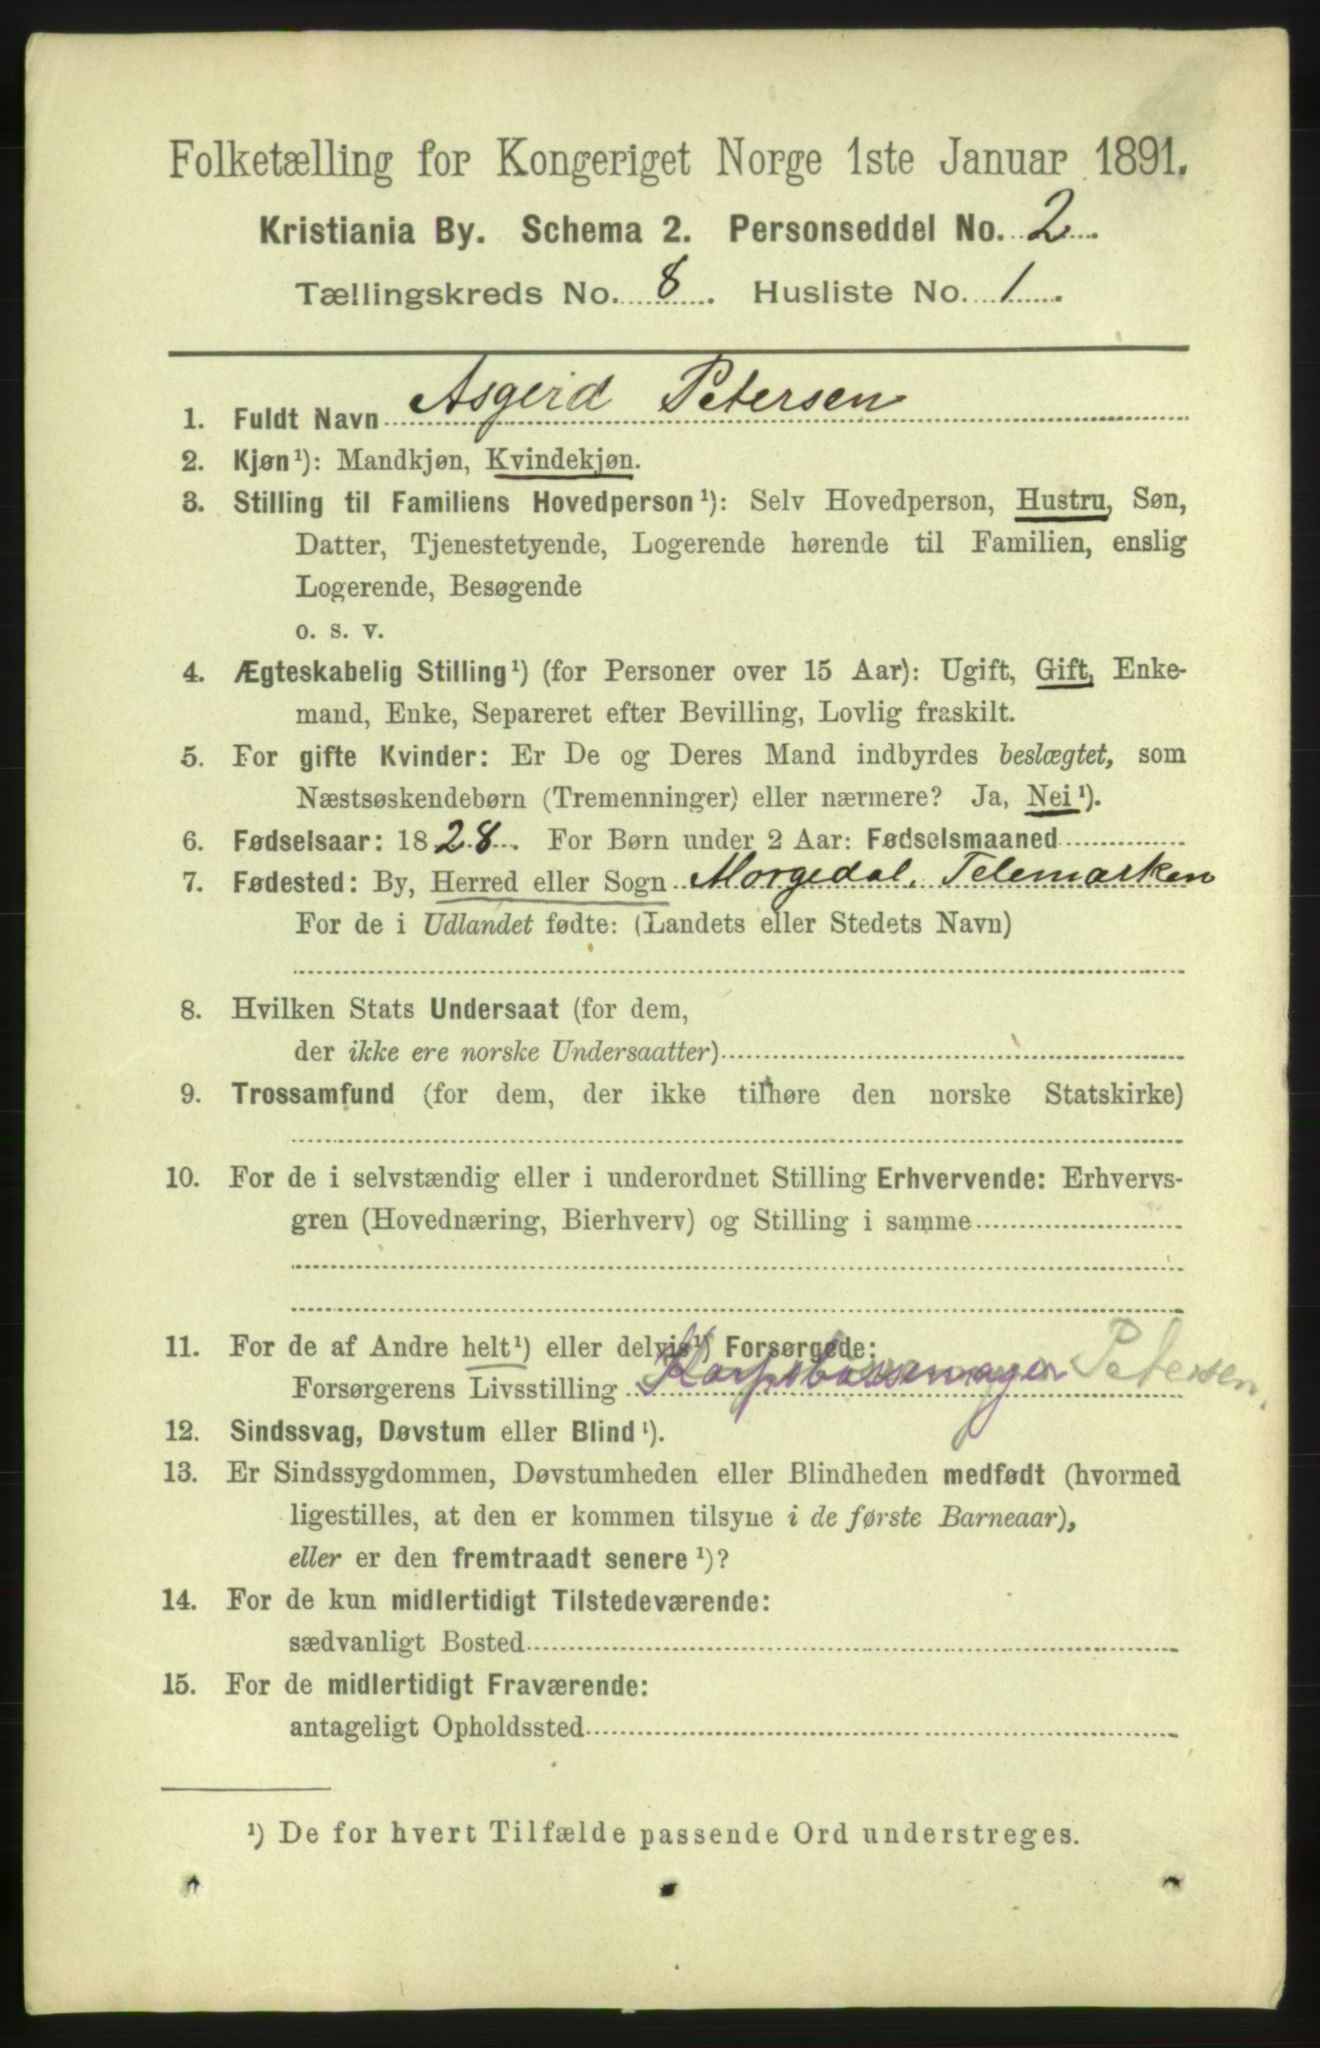 Folketælling for Kongeriget Norge 1ste Januar 1891.
Kristiania By. Schema 2. Personseddel No. 2.
Tællingskreds No. 8. Husliste No. 1.
1. Fuldt Navn Asgerd Petersen
2. Kjøn¹): Mandkjøn, Kvindekjøn.
3. Stilling til Familiens Hovedperson¹): Selv Hovedperson, Hustru, Søn,
Datter, Tjenestetyende, Logerende hørende til Familien, enslig
Logerende, Besøgende
o. s. v.
4. Ægteskabelig Stilling¹) (for Personer over 15 Aar): Ugift, Gift, Enke-
mand, Enke, Separeret efter Bevilling, Lovlig fraskilt.
5. For gifte Kvinder: Er De og Deres Mand indbyrdes beslægtet, som
Næstsøskendebørn (Tremenninger) eller nærmere? Ja, Nei¹).
6. Fødselsaar: 1828. For Børn under 2 Aar: Fødselsmaaned
7. Fødested: By, Herred eller Sogn Morgedal, Telemarken
For de i Udlandet fødte: (Landets eller Stedets Navn)
8. Hvilken Stats Undersaat (for dem,
der ikke ere norske Undersaatter)
9. Trossamfund (for dem, der ikke tilhøre den norske Statskirke)
10. For de i selvstændig eller i underordnet Stilling Erhvervende: Erhvervs-
gren (Hovednæring, Bierhverv) og Stilling i samme
11. For de af Andre helt¹) eller delvis¹) Forsørgede:
Forsørgerens Livsstilling Korpsbøssemager Petersen.
12. Sindssvag, Døvstum eller Blind¹).
13. Er Sindssygdommen, Døvstumheden eller Blindheden medfødt (hvormed
ligestilles, at den er kommen tilsyne i de første Barneaar),
eller er den fremtraadt senere¹)?
14. For de kun midlertidigt Tilstedeværende:
sædvanligt Bosted
15. For de midlertidigt Fraværende:
antageligt Opholdssted
¹) De for hvert Tilfælde passende Ord understreges.